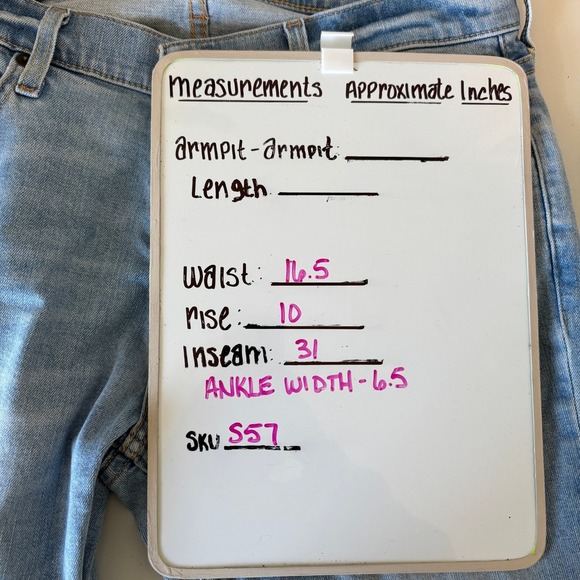 measurements Approximate Inches
armpit-armpit:
Length
waist: 16.5
rise: 10
Inseam: 31
ANKLE WIDTH - 6.5
SKU S57